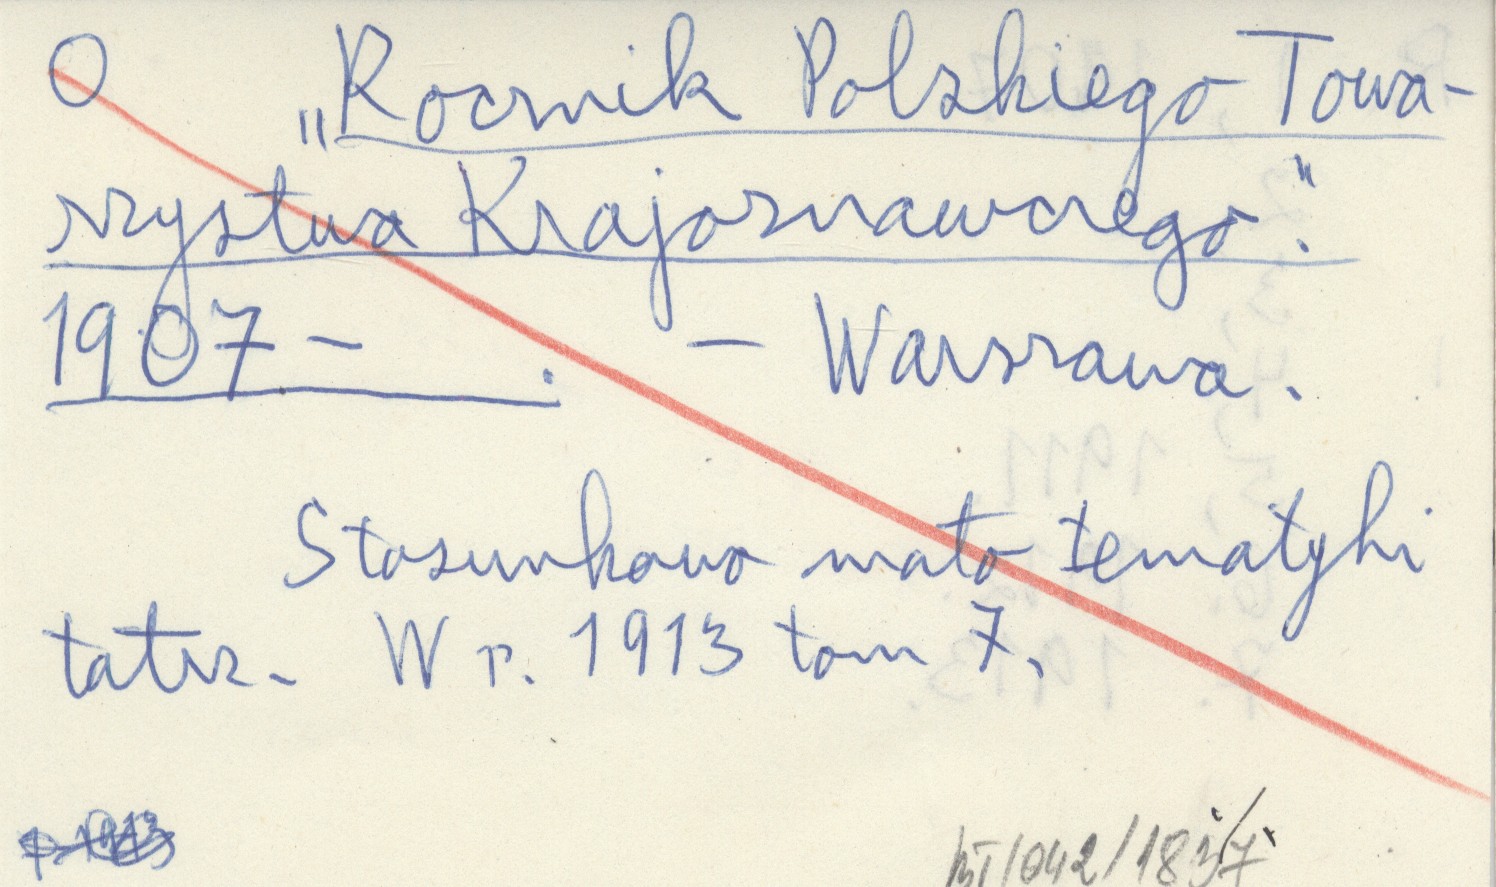 O „Rocznik Polskiego Towa-
rzystwa Krajoznawczego".
1907 – . – Warszawa.
Stosunkowo mało tematyki
tatrz. W r. 1913 tom 7.
1913
/042/1837